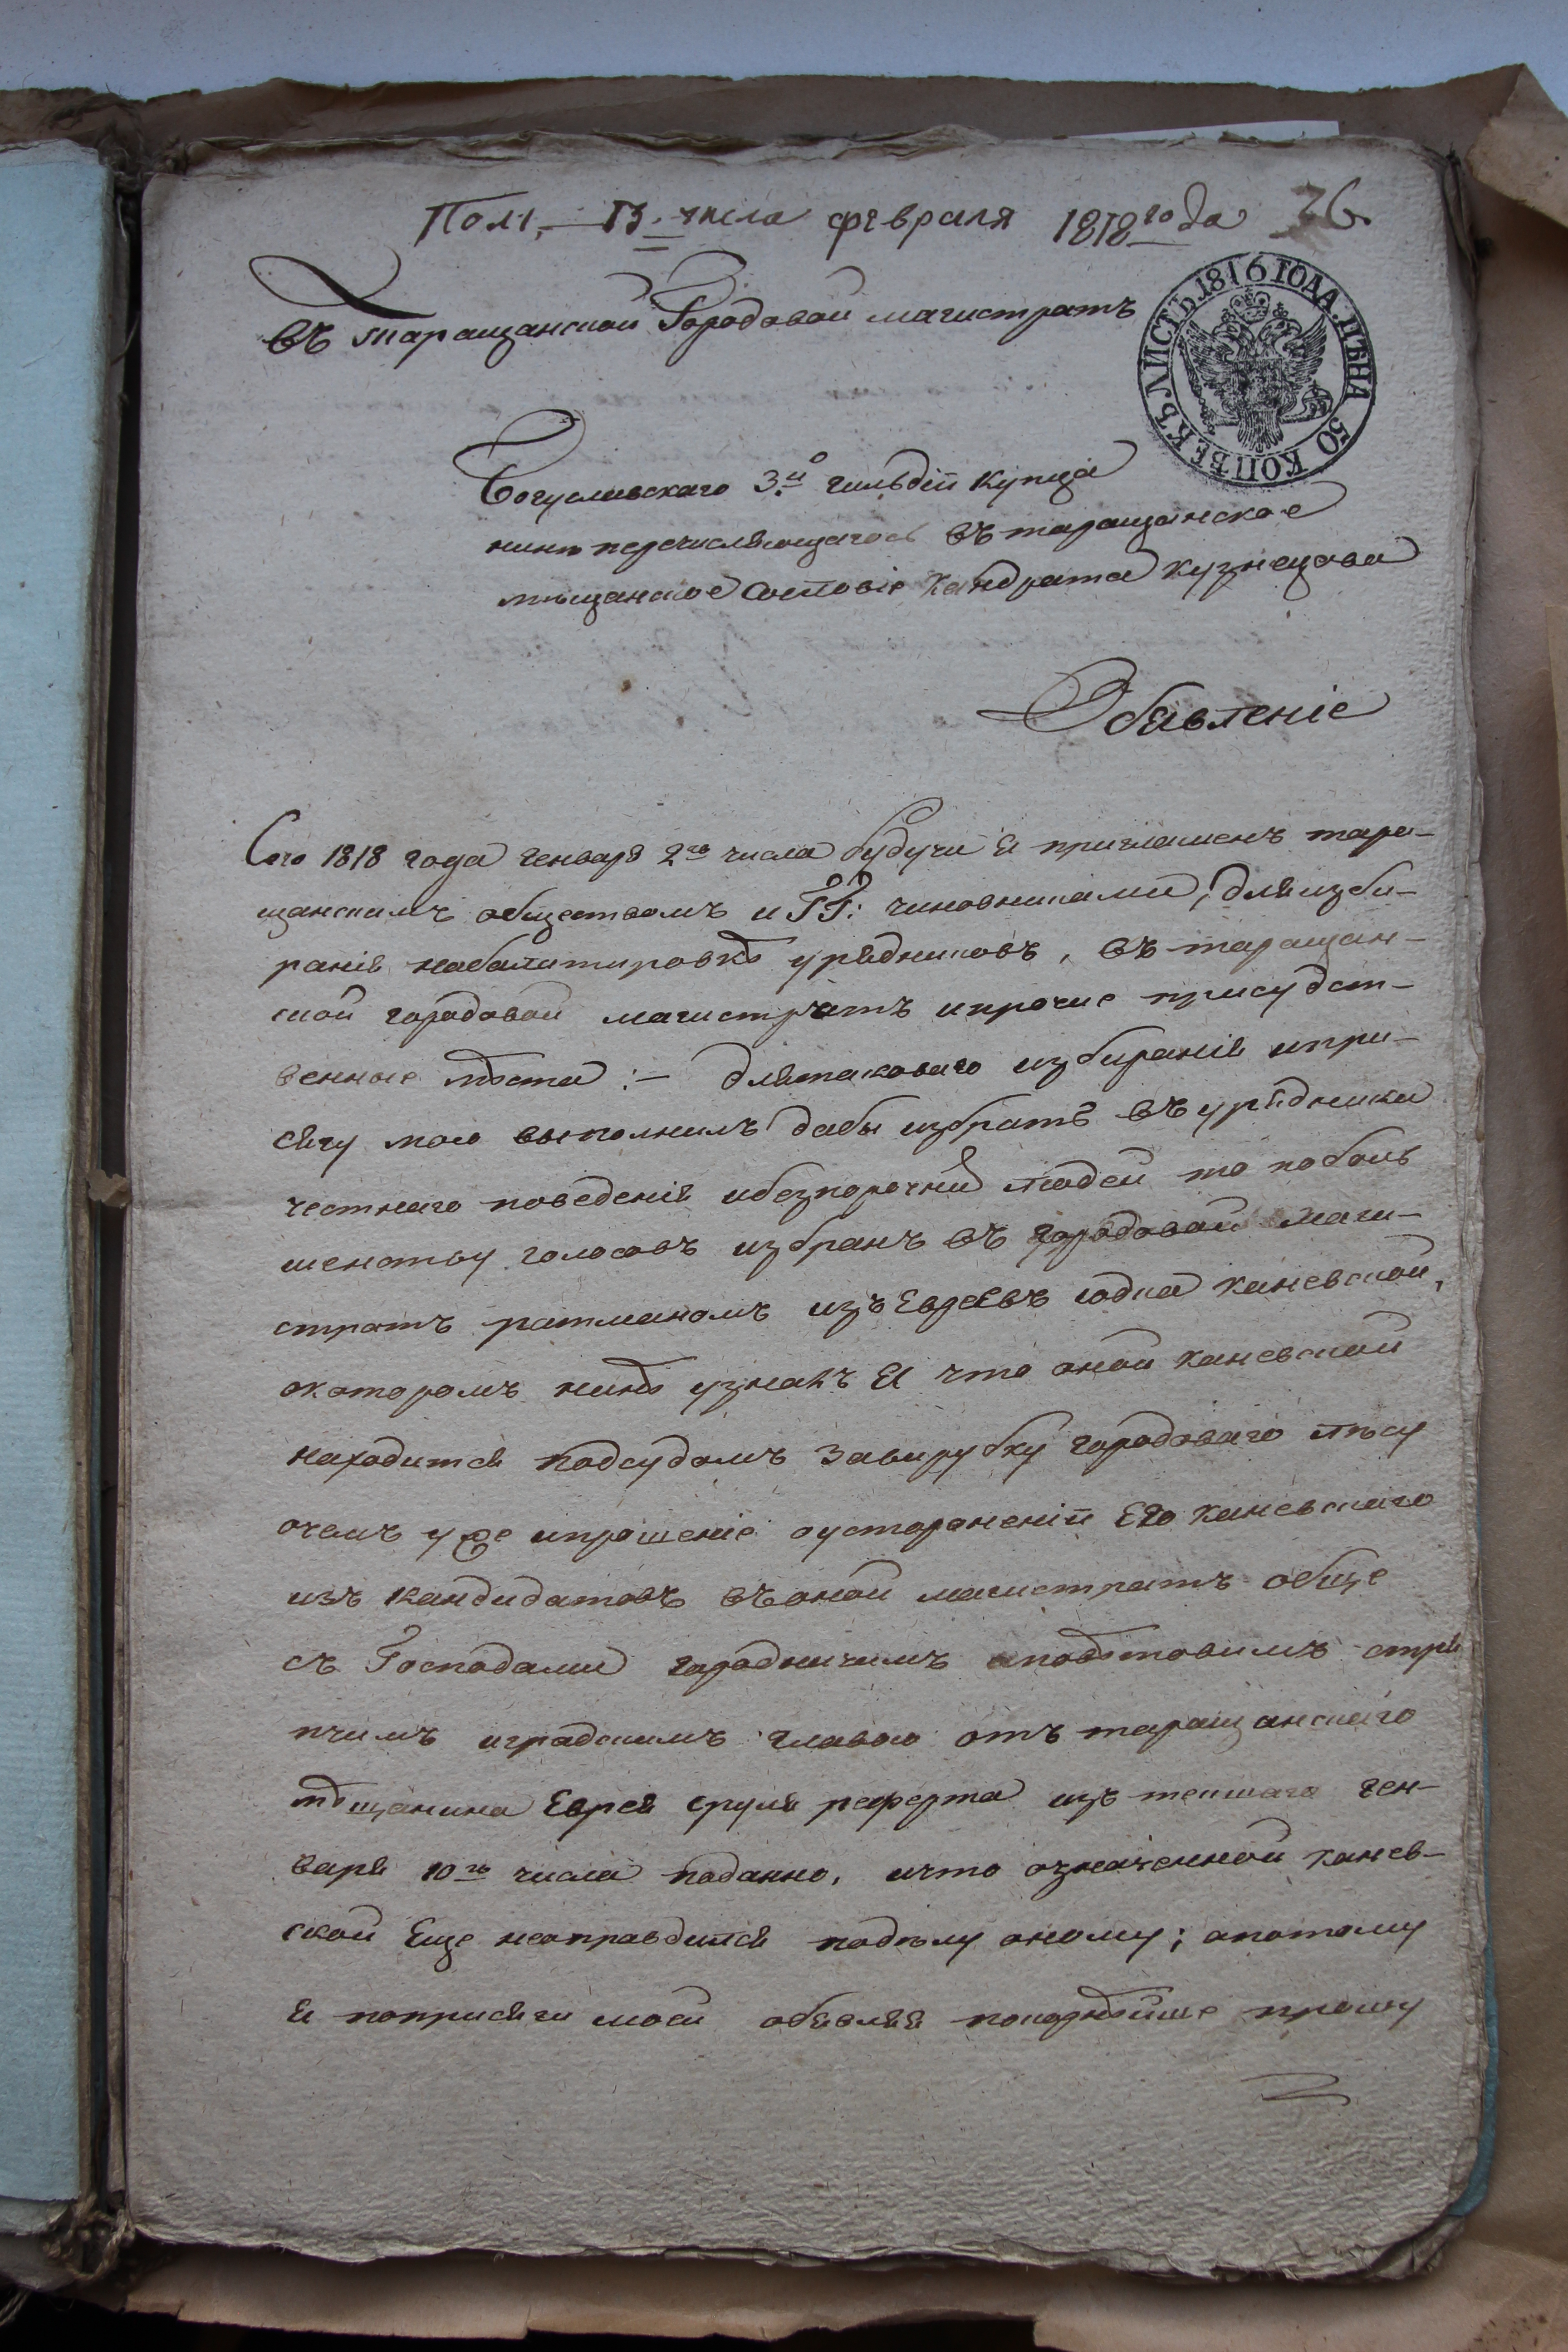 Пол: 13. числа февраля 1818 года 36.
Въ таращанской Городовой магистратъ
ЛИСТЪ 1816 ГОДА. ЦѢНА 50 КОПѢЕКЪ
Богуславскаго 3й гильдіи купца
нинѣ перечисляющагось въ таращанское
мѣщанское сословіе Кандрата кузнецова
Обявленіе
Сего 1818 года генваря 2го числа будучи я приглашенъ тара-
щанскимъ обществомъ и ГГ: чиновниками, для избы-
ранія набалатировкѣ урядниковъ, въ таращан-
ской городовой магистратъ ипрочие присудст-
венные мѣста :- длятаковаго избиранія ипри-
сягу мою выполнилъ дабы избрать въ урядники
честнаго поведенія ибезпорочни людей то поболь
шенству голосовъ избранъ въ городовой маги-
стратъ ратманомъ изъ Евреевъ иодка каневской,
окоторомъ нинѣ узналъ я что оной каневской
находится подсудомъ завирубку городоваго лѣсу
очемъ уже ипрошеніе оустораненіи Его каневскаго
изъ кандидатовъ въоной магистратъ обще
съ Господами городничимъ иповѣтовимъ стря
пчимъ играdскимъ главою отъ таращанскаго
мѣщанина Еврея сруля реферта изъ текшаго ген-
варя 10го числа поданно, ичто означенной канев-
ской Еще неоправдился подѣлу оному; апотому
я поприсяги моей обявляя покорнѣйше прошу